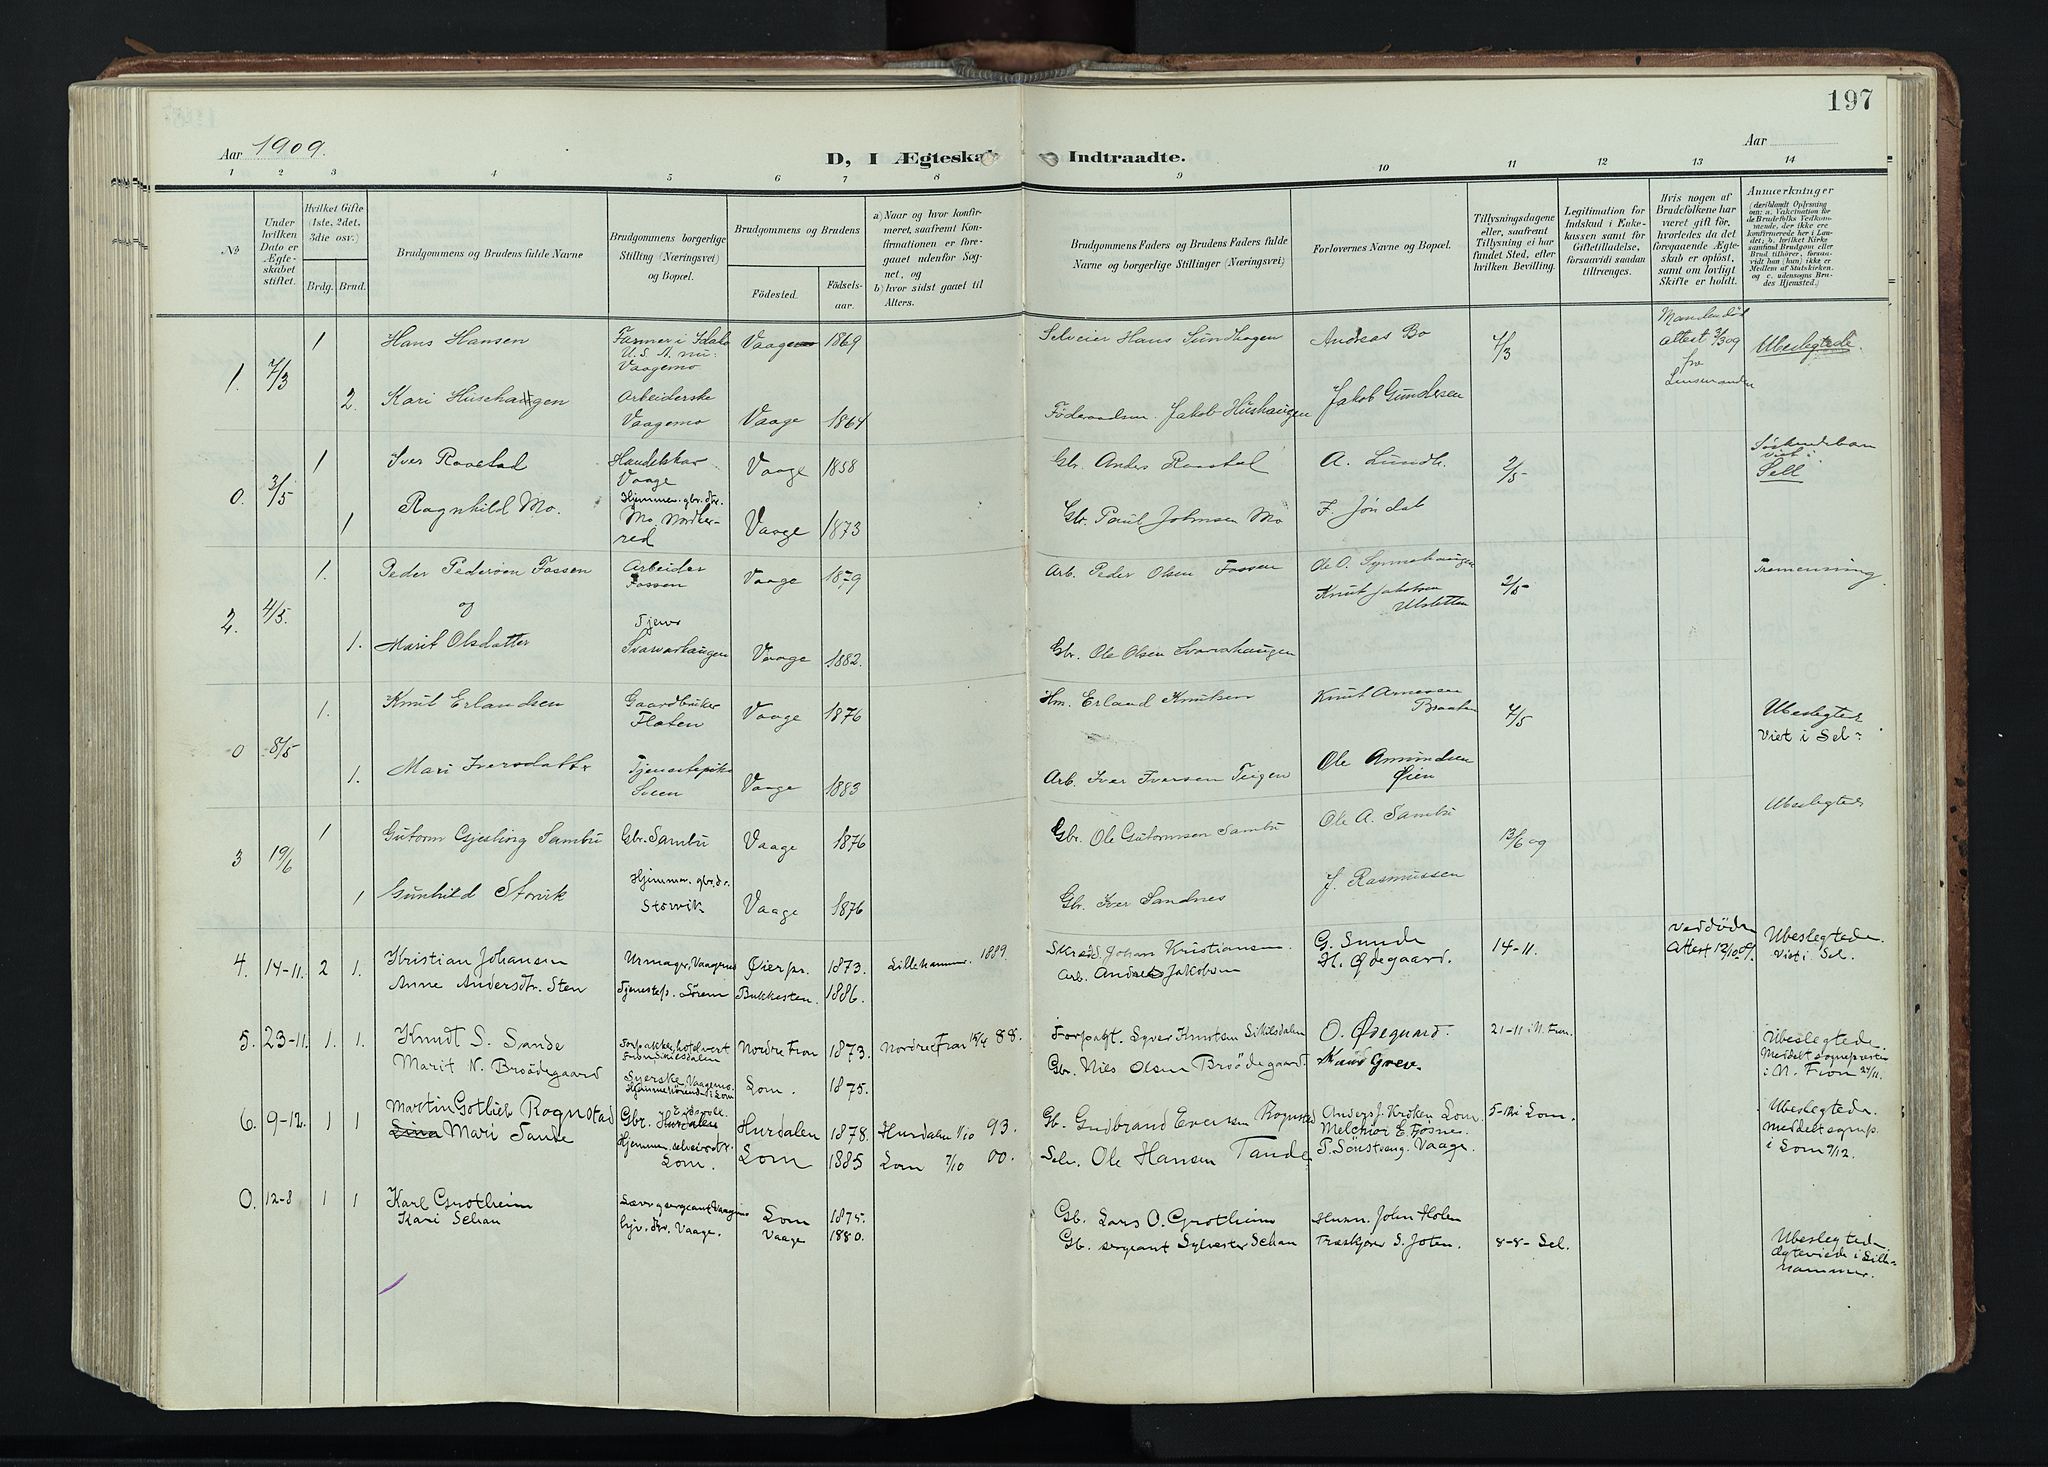 197
Aar 1909.
D, I Ægteskab Indtraadte.
Aar
1 2 3 4 5 6 7 8 9 10 11 12 13 14
No
Under hvilken Dato er Ægteskabet stiftet.
Hvilket Gifte (1ste, 2det, 3die osv.)
Brdg. Brud.
Brudgommens og Brudens fulde Navne
Brudgommens borgerlige Stilling (Næringsvei) og Bopæl.
Brudgommens og Brudens
Fødested. Fødselsaar.
a) Naar og hvor konfirmeret, saafremt Konfirmationen er foregaaet udenfor Sognet, og
b) hvor sidst gaaet til Alters.
Brudgommens Faders og Brudens Faders fulde Navne og borgerlige Stillinger (Næringsvei)
Forlovernes Navne og Bopæl.
Tillysningsdagene eller, saafremt Tillysning ei har fundet Sted, efter hvilken Bevilling.
Legitimation for Indskud i Enkekassen samt for Giftetilladelse, forsaavidt saadan tiltrænges.
Hvis nogen af Brudefolkene har været gift før, hvorledes da det foregaaende Ægteskab er opløst, samt om lovligt Skifte er holdt.
Anmærkninger (deriblandt Oplysning om: a. Vakcination for de Brudefolks Vedkommende, der ikke ere konfirmerede her i Landet; b. hvilket Kirkesamfund Brudgom eller Brud tilhører, forsaavidt han (hun) ikke er Medlem af Statskirken, og c. udensogns Brudes Hjemsted.)
1. 7/3 1 Hans Hansen Farmer i Idaho U.S.A. nu Vaagemo Vaage 1869 Selveier Hans Sundhagen Andreas Bo 4/3 attest 3/3 09 fra Lensmanden Ubeslegtede.
2. Kari Husehaugen Arbeiderske Vaagemo Vaage 1864 Føderaadsm. Jakob Hushaugen Jakob Gundersen
0. 3/5 1 Iver Raastad Handelskar Vaage Vaage 1858 Gbr. Anders Raastad A. Lundh. 2/5 Søskendebarn viet i Sell
1 Ragnhild Mo. Hjemmev. gbr. dtr. Mo, Nordherred Vaage 1873 Gbr. Paul Johnsen Mo F. Jøndal
2. 4/5. 1. Peder Pedersen Fossen Arbeider Fossen Vaage 1879 Arb. Peder Olsen Fossen Ole O. Synneshaugen 2/5 Tremenning
og Knut Jakobsen Ulsletten
1. Marit Olsdatter Tjener Svarvarhaugen Vaage 1882. Gbr. Ole Olsen Svarvahaugen
0 8/5 1. Knut Erlandsen Gaardbruker Flaten Vaage 1876 Hm. Erland Knutsen Knut Arnesen Braaten 7/5 Ubeslegtet Viet i Sel
1. Mari Iversdatter Tjenestepike Sveen Vaage 1883 Arb. Iver Iversen Teigen Ole Amundsen Øien
3 19/6 1 Gutorm Gjesborg Sambu Gbr. Sambu Vaage 1876 Gbr. Ole Gutormsen Sambu Ole A. Sambu 13/6 09 Ubeslegtet
1 Gunhild Storvik Hjemmev. gbr. dr. Storvik Vaage 1876 Gbr. Iver Sandnes J. Rasmussen
4. 14-11. 2 1. Kristian Johansen Urmager, Vaagemo Øierpr. 1873. Lillehammer. 1889. Skræd. Johan Kristiansen. G. Sunde 14-11. ved død Attest 12/10 09. Ubeslegtede. viet i Sel.
Anne Andersdtr. Sten Tjenestep. Sørem Bukkesten. 1886. Arb. Andreas Jakobsen H. Ødegaard.
5. 23-11. 1. 1. Knudt S. Sande Nordre Fron 1873. Nordre Fron 15/4 88. Forpakt. Syver Knutsen Sikilsdalen O. Ødegaard. 21-11 i N. Fron. Ubeslegtede.
Marit N. Brøødegaard Syerske Vaagemo. Lom. 1875. Gbr. Niels Olsen Brøødegaard. Meddelt sognepresten i N. Fron 24/11.
6. 9-12. 1 1 Martin Gotlieb Rognstad Gbr. Hurdalen Hurdalen 1878. Hurdalen 1/10 93. Gb. Gudbrand Evensen Rognstad Anders J. Kroken Lom. 5-12 i Lom. Ubeslegtede.
Mari Tande Hjemmev. selveierdtr. Lom. Lom 1885 Lom 7/10 00. Selv. Ole Hansen Tande Melchior E. Fjøsne. P. Sønsteng. Vaage. meddelt sognep. i Lom 9/12.
0. 12-8 1 1 Karl Grotheim Lærer, sergeant, Vaagemo Lom 1875. Gb. Lars O. Grotheim John Holen
Kari Sehan hjv. dtr. Vaage. Vaage 1880. Gb. sergeant Sylvester Sehan S. Joten. 8-8- Sel. Ubeslegtede Egteviede i Lillehammer.